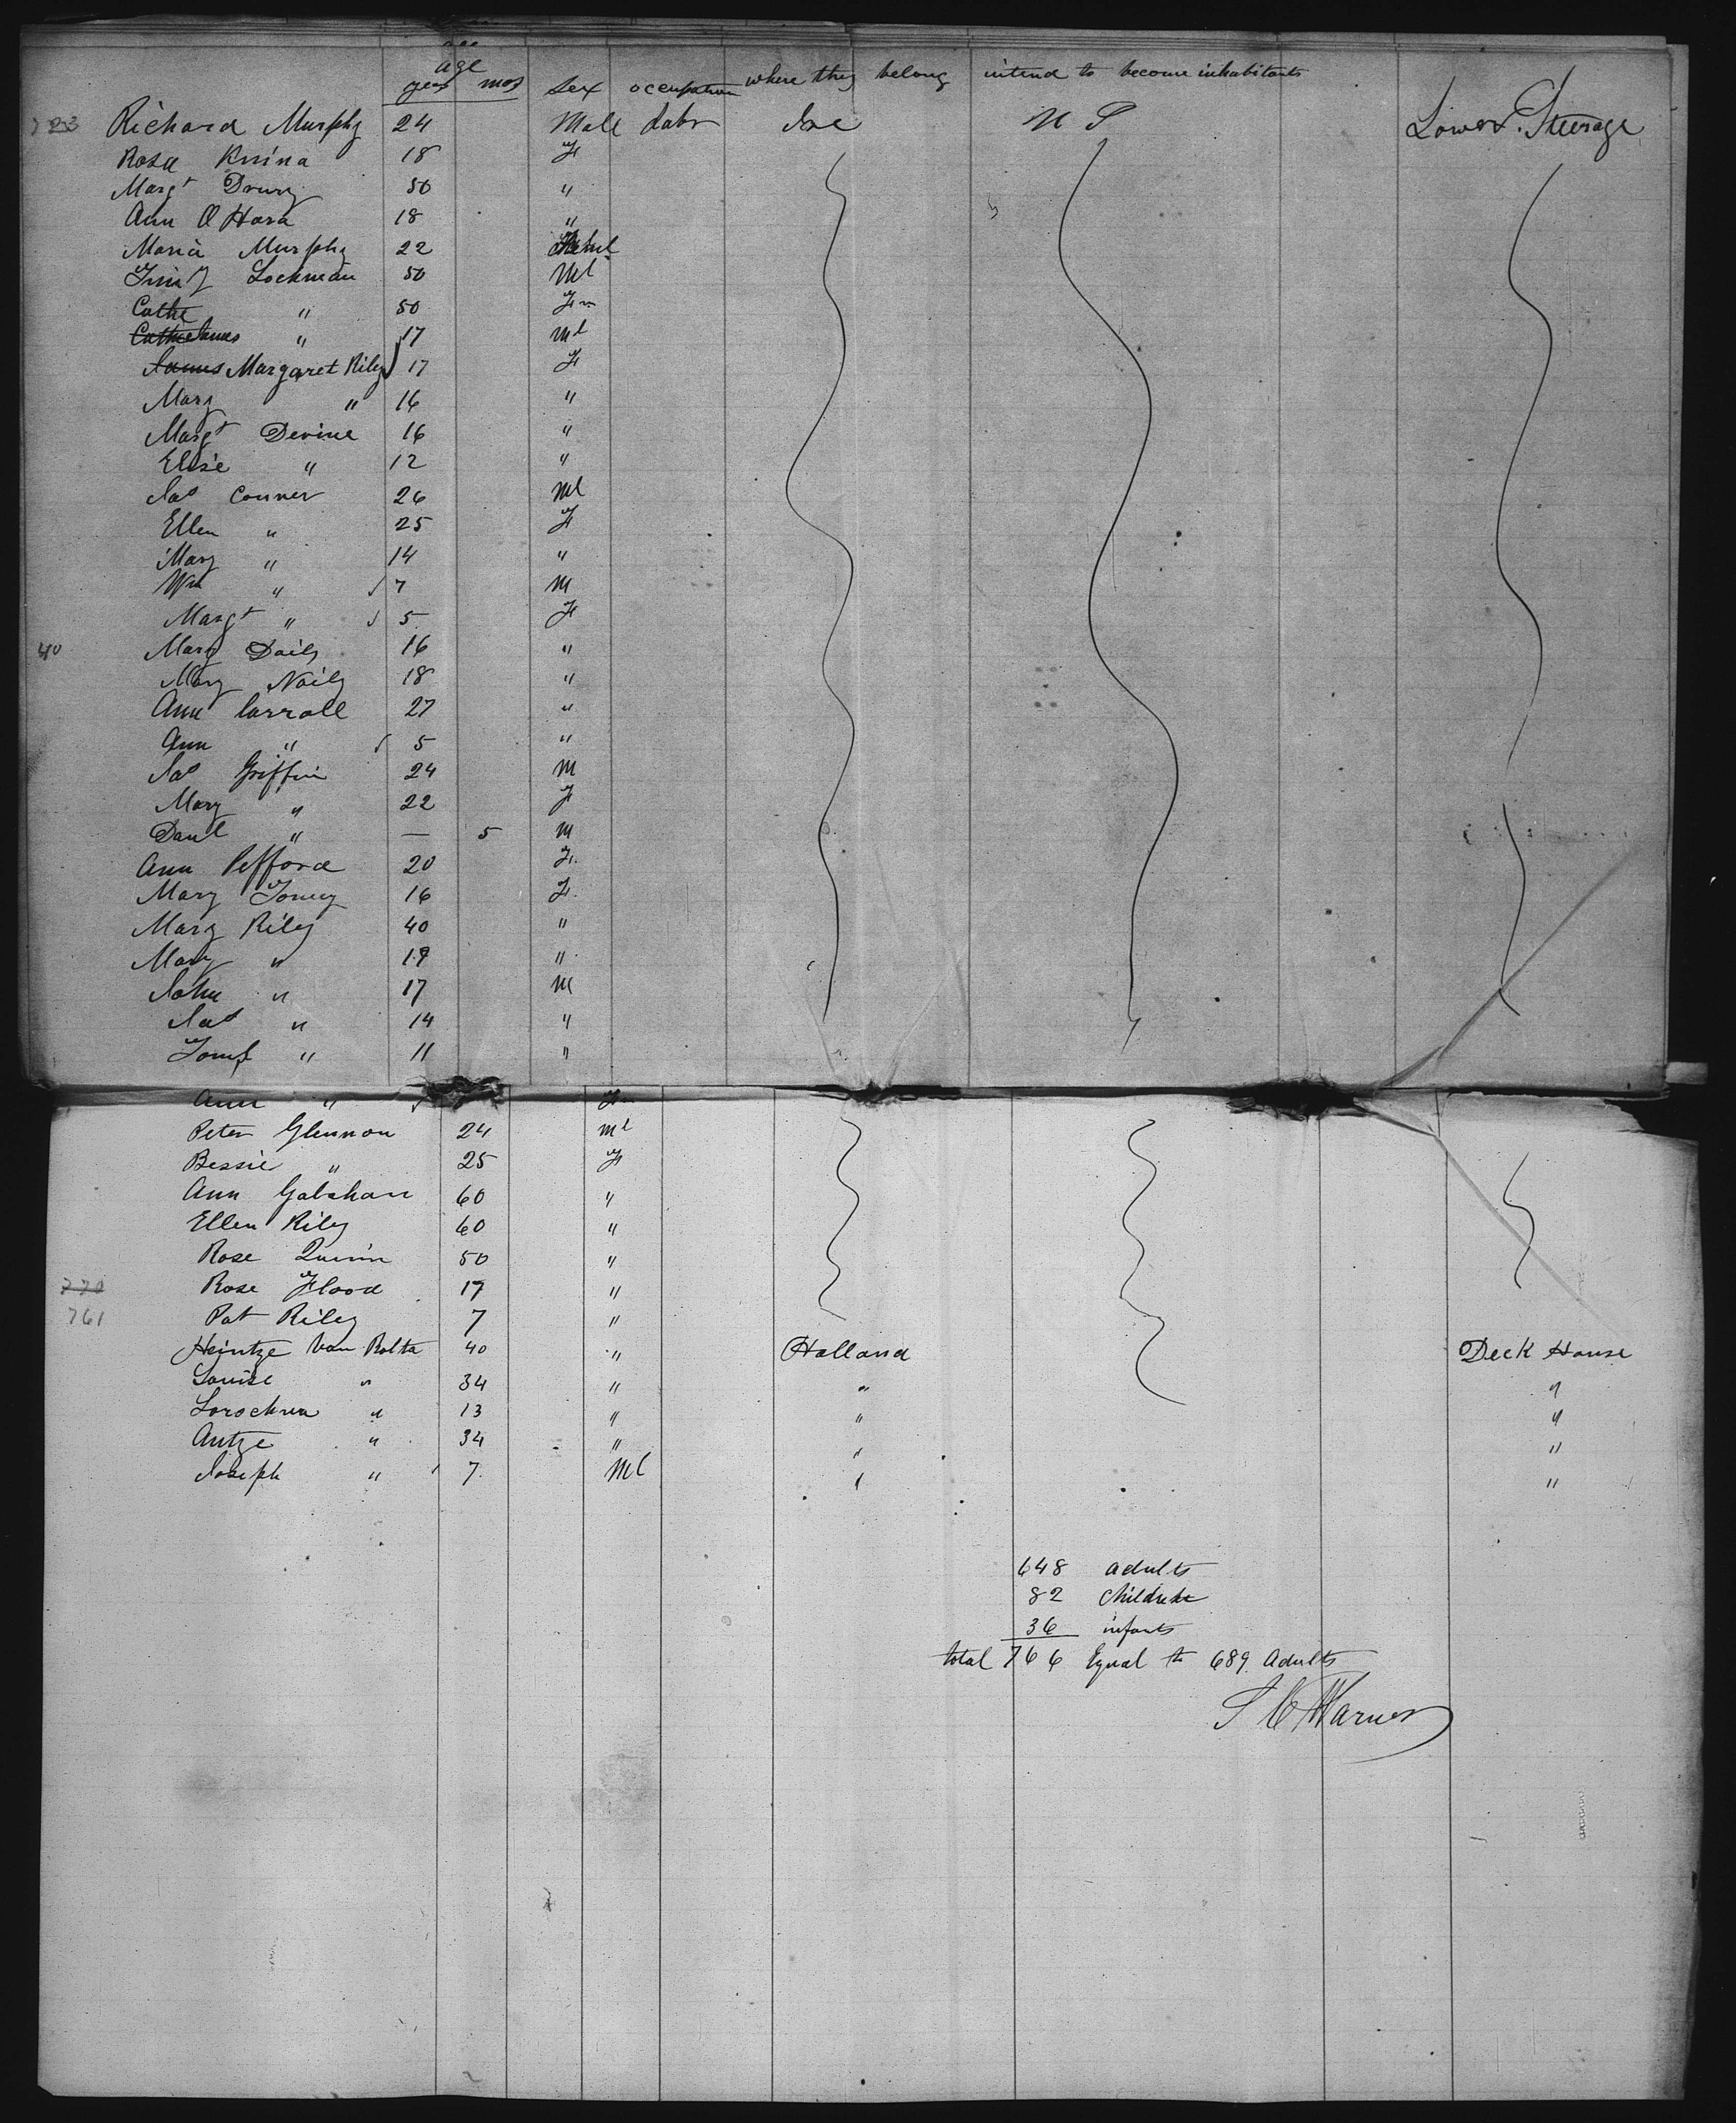 age
years mos sex occupation where they belong intend to become inhabitants
723 Richard Murphy 24 Male Labr Ire U S Lower Steerage
Rosa 18 F
Margt Drury 50 "
Ann O Hara 18 "
Maria Murphy 22
Lockman 50 Ml
Cathe " 50 F
James " 17 Ml
James Margaret Riley 17 F
Mary " 16 "
Margt Devine 16 "
Elise " 12 "
Jas Conner 26 Ml
Ellen " 25 F
Mary " 14 "
Wm " 7 M
Margt " 5 F
40 Mary Daily 16 "
Mary Naily 18 "
Ann Carroll 27 "
Ann " 5 "
Jas Griffin 24 M
Mary " 22 F
Danl " — 5 M
Ann Pefford 20 F.
Mary 16 F.
Mary Riley 40 "
Mary " 19 "
John " 17 M
Jas " 14 "
" 11 "
Ann " F
Peter Glennon 24 Ml
Bessie " 25 F
Ann Galahan 60 "
Ellen Riley 60 "
Rose Quinn 50 "
770 Rose Flood 17 "
761 Pat Riley 7 "
Heintze Van Bolta 40 " Holland Deck House
Louise " 34 " " "
" 13 " " "
Antze " 34 " " "
Joseph " 7 Ml " "
648 adults
82 Children
36 infants
total 766 Equal to 689 Adults
S C Warner